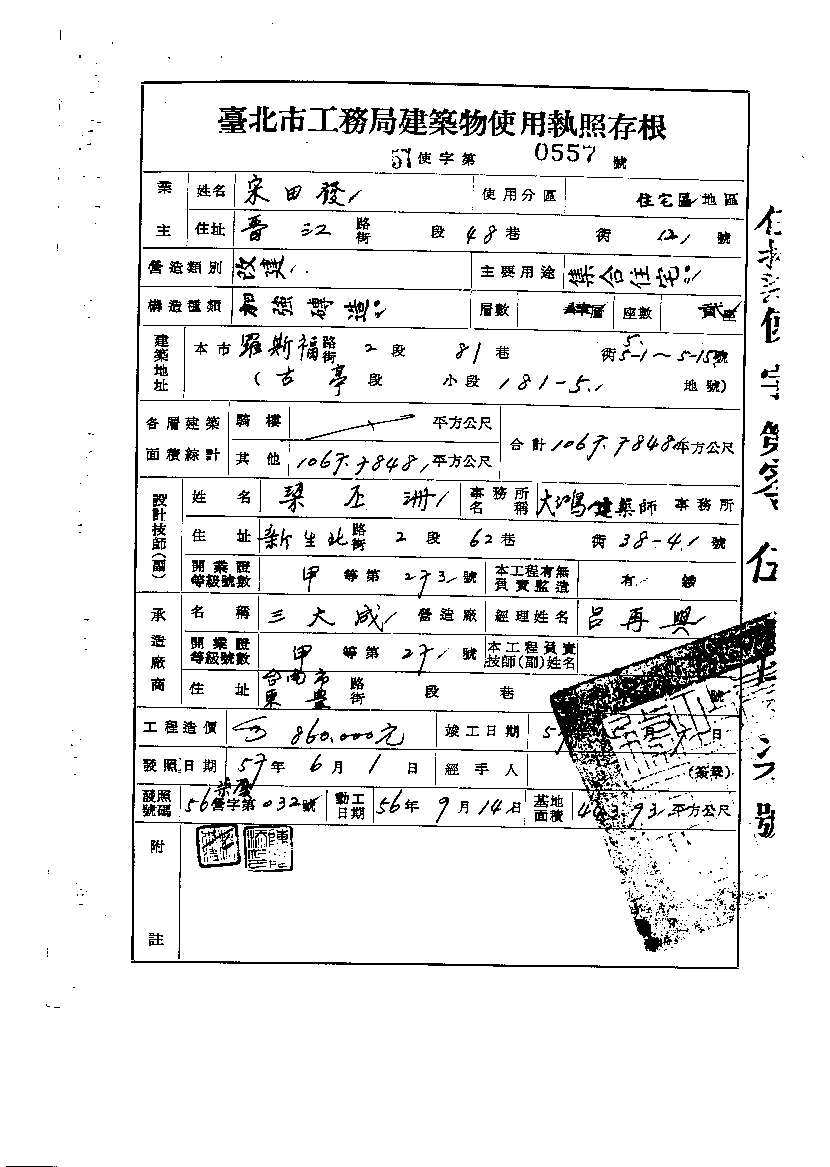 臺北市工務局建築物使用執照存根
57 使字第 0557 號
業主 姓名 宋田發 使用分區 住宅區 地區
住址 晋江 路街 段 48 巷 街 12 號
營造類別 改建 主要用途 集合住宅
構造種類 加強磚造 層數 層 座數 貳座
建築地址 本市 羅斯福 路街 2 段 81 巷 街 5.5-1~5-15 號
(古亭 段 小段 181-5 地號)
各層建築面積綜計 騎樓 平方公尺 合計 平方公尺
其他 平方公尺
設計技師(副) 姓名 梁丕洲 事務所名稱 大鴻建築師 事務所
住址 新生北 路街 2 段 62 巷 街 38-4 號
開業證等級號數 甲 等第 273 號 本工程有無負責監造 有
承造廠商 名稱 三大成 營造廠 經理姓名 呂再興
開業證等級號數 甲 等第 271 號 本工程負責技師(副)姓名
住址 台南市東豊 路街 段 巷 號
工程造價 860,000元 竣工日期 57 月 日
發照日期 57 年 6 月 1 日 經手人 (簽章)
發照號碼 56 營字第 032 號 動工日期 56 年 9 月 14 日 基地面積 443.93 平方公尺
附註